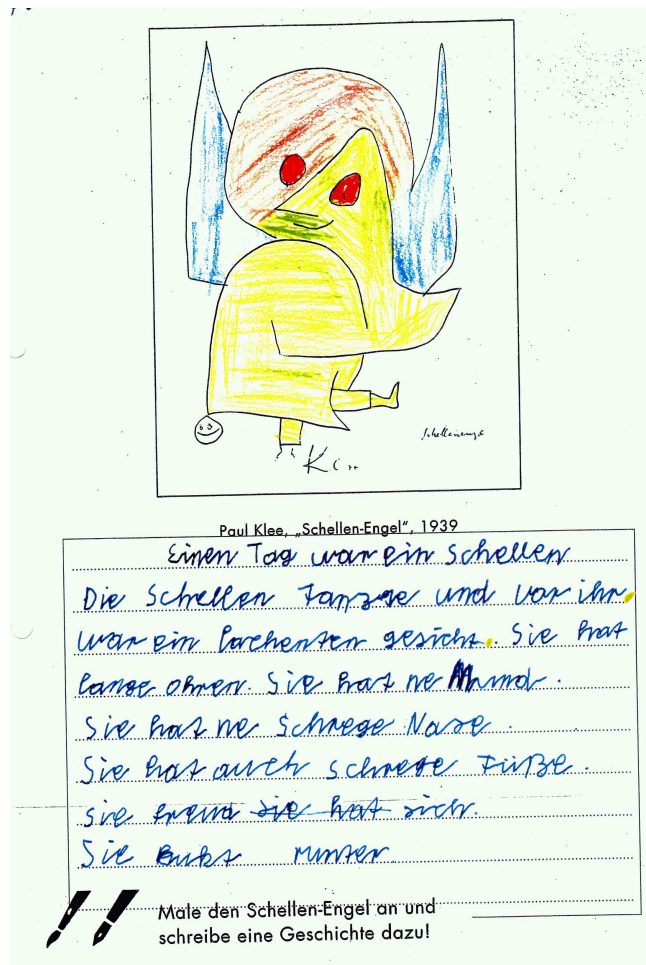 Schellenenge
Klee
Paul Klee, „Schellen-Engel“, 1939
Einen Tag war ein Schellen
Die Schellen Tanzge und vor ihr.
war ein lachenten gesicht. Sie hat
lange ohren. Sie hat ne Mund.
Sie hat ne Schrege Nase.
Sie hat auch schrege Füße.
sie freud sie hat sich.
Sie gukt runter
Male den Schellen-Engel an und
schreibe eine Geschichte dazu!